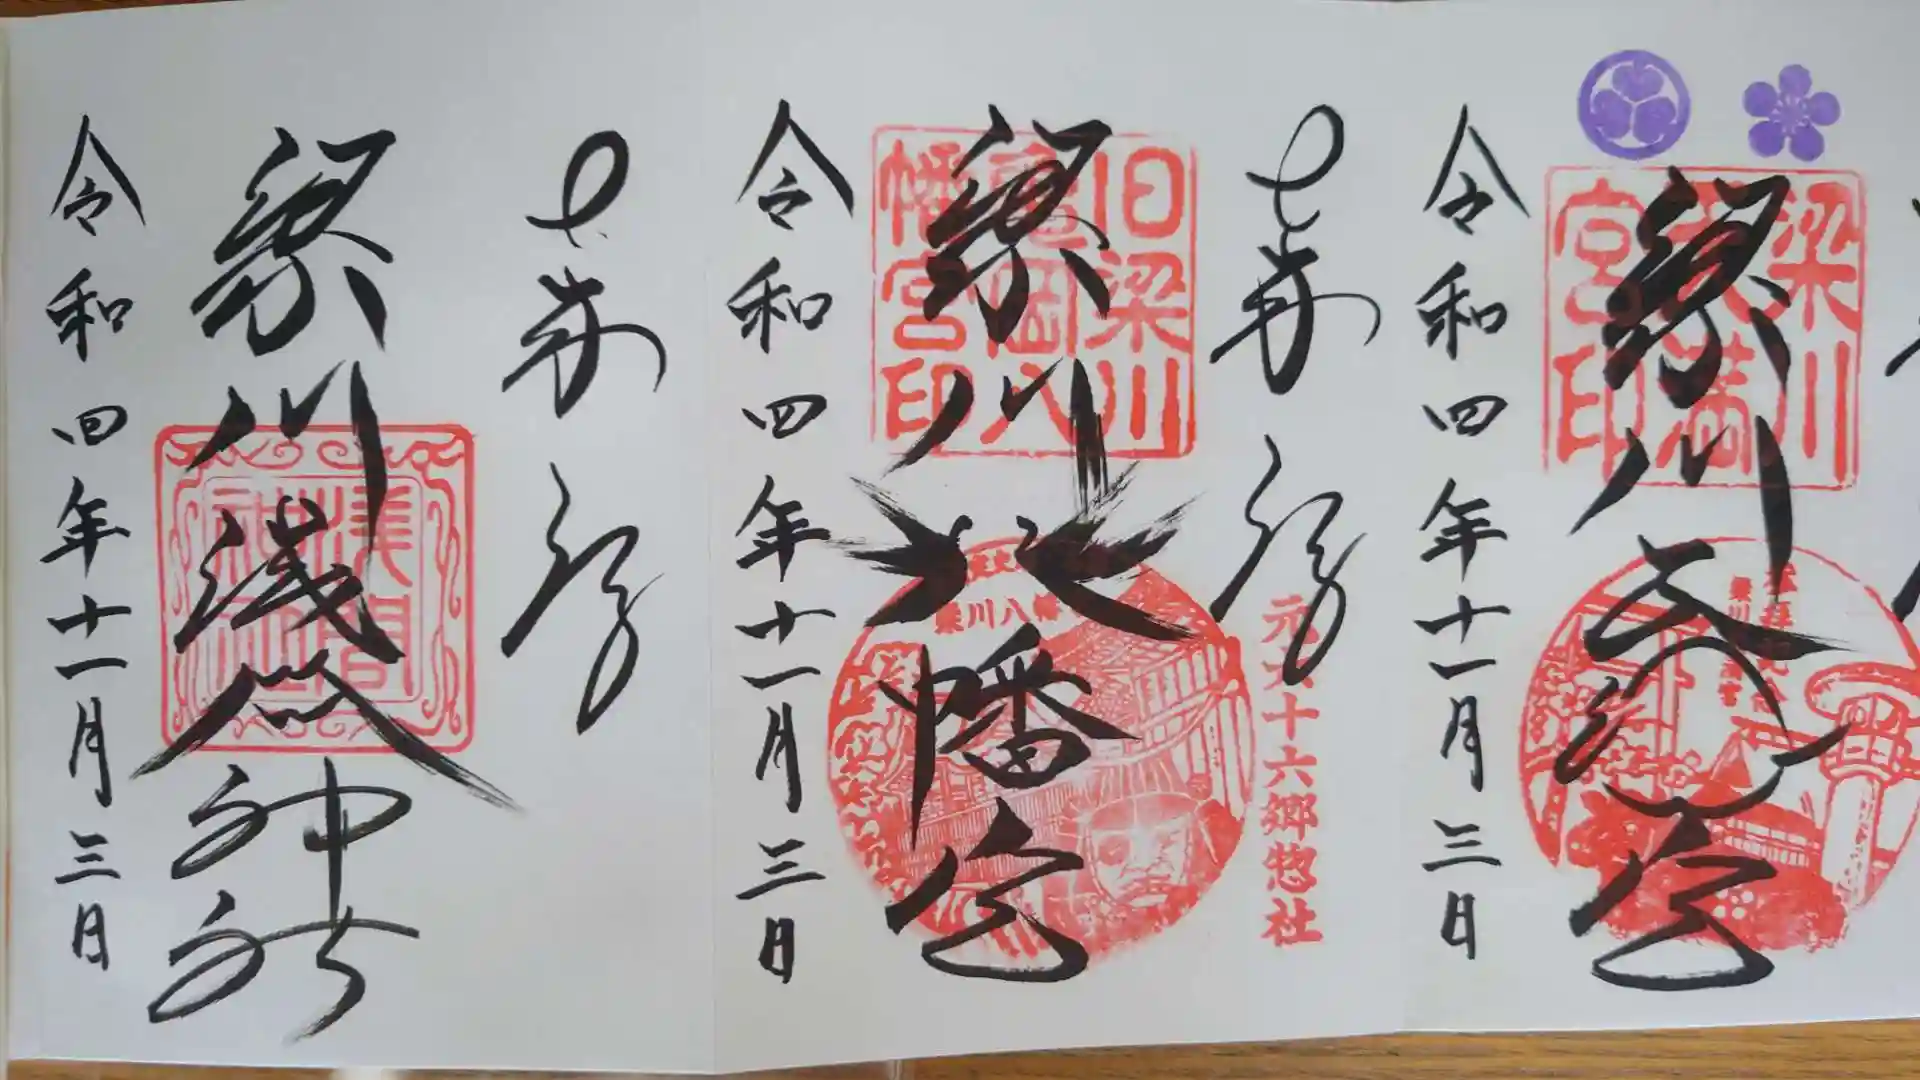 梁川天満宮印
梁川天満宮
令和四年十一月三日
奉拝
十六郷惣社
旧梁川亀岡八幡宮印
梁川八幡
梁川八幡宮
令和四年十一月三日
奉拝
梁川浅間神社
浅間神社
令和四年十一月三日